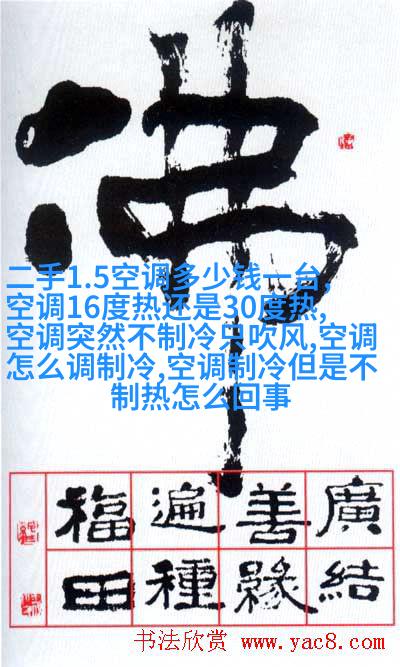 佛
二手1.5空调多少钱一台,
空调16度热还是30度热,
空调突然不制冷只吹风,空调
怎么调制冷,空调制冷但是不
制热怎么回事
廣結
善緣
遍種
福田
书法欣赏 www.yac8.com